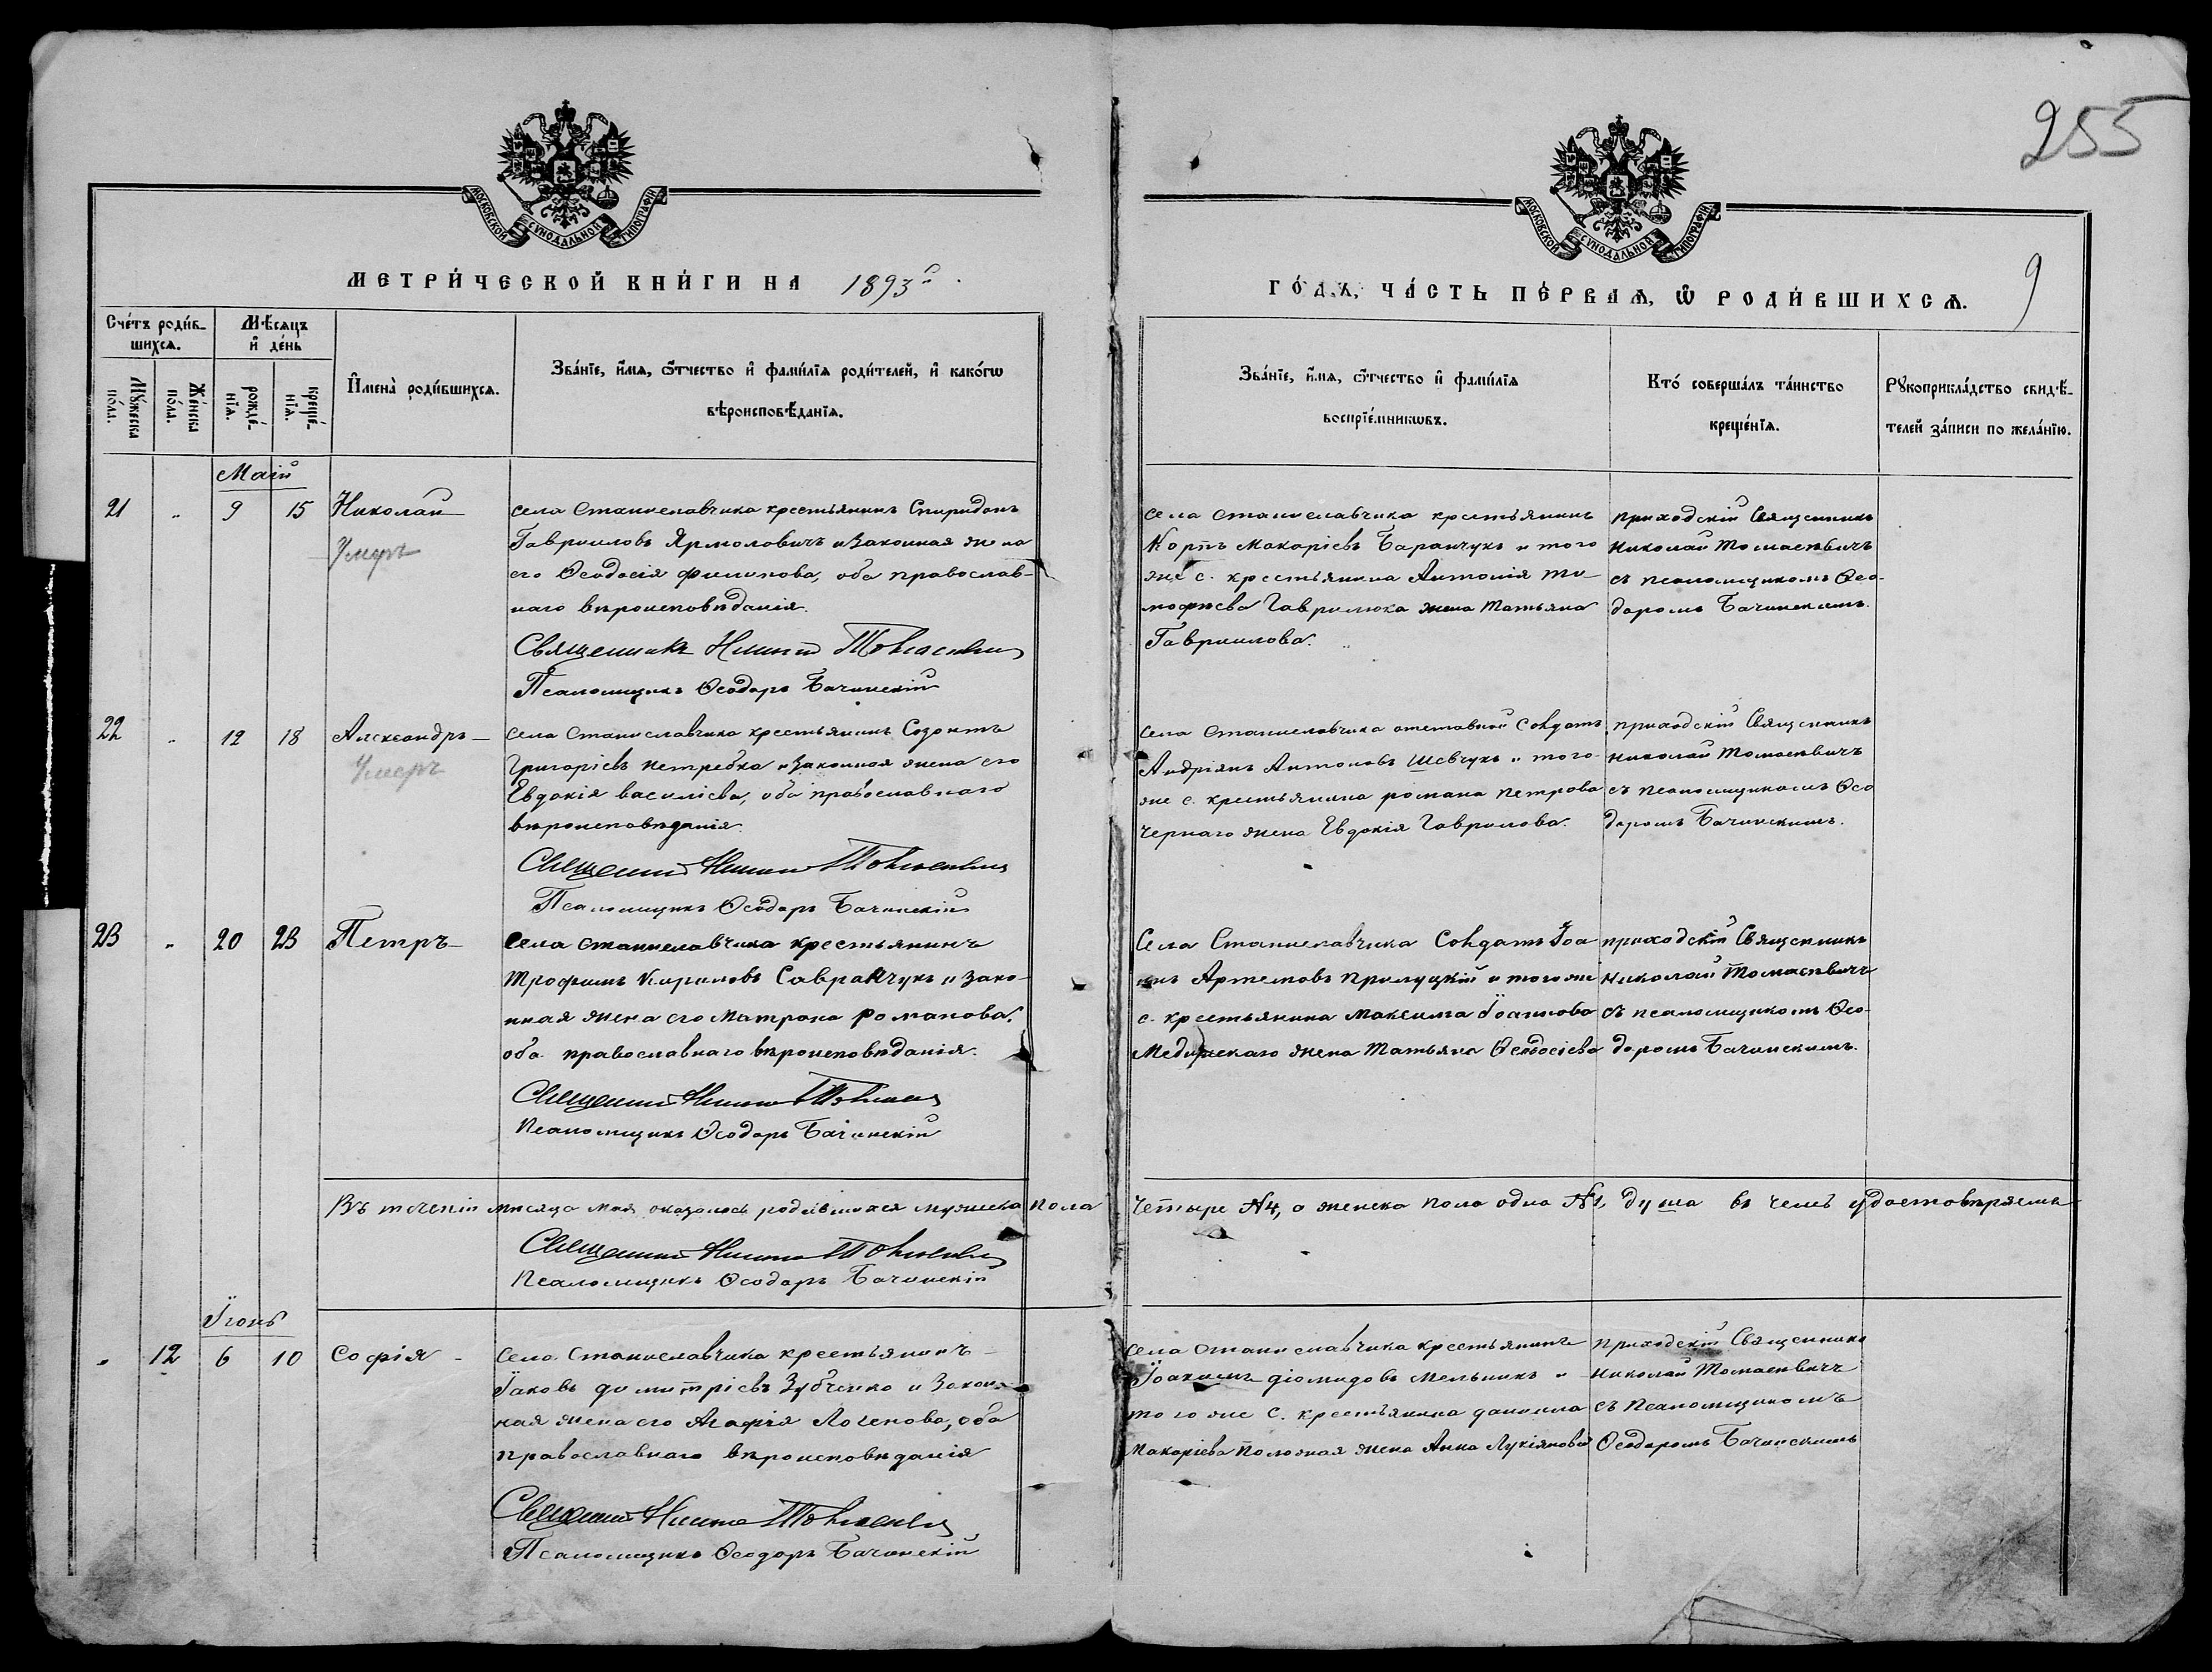 255
9
МОСКОВСКОЙ СѴНОДАЛЬНОЙ ТИПОГРАФІИ
МОСКОВСКОЙ СѴНОДАЛЬНОЙ ТИПОГРАФІИ
МЕТРИ́ЧЕСКОЙ КНИ́ГИ НА 1893
ГО́ДЪ, ЧА́СТЬ ПЕ́РВАѦ, Ѽ РОДИ́ВШИХСѦ.
Сче́тъ роди́в-
шихсѧ.
Мꙋ́жеска
по́ла.
Же́нска
по́ла.
Мѣ́сѧцъ
и҆ де́нь
рожде́-
нїѧ.
креще́-
нїѧ.
И҆мена̀ роди́вшихсѧ.
Зва́нїе, и҆́мѧ, ѻ҆́тчество и҆ фами́лїѧ роди́телей, и҆ како́гѡ
вѣроисповѣ́данїѧ.
Зва́нїе, и҆́мѧ, ѻ҆́тчество и҆ фами́лїѧ
воспрїе́мникѡвъ.
Кто́ соверша́лъ та́инство
креще́нїѧ.
Рꙋкоприкла́дство свидѣ́-
телей за́писи по жела́нїю.
Маій
21 " 9 15 Николай
Умеръ
села Станиславчика крестьянинъ Спиридонъ
Гавриловъ Ярмоловичъ и законная жена
его Ѳеодосія Филипова, оба православ-
наго вѣроисповѣданія.
Священникъ Николай Томасевич
Псаломщикъ Ѳеодоръ Бачинскій
Села Станиславчика крестьянинъ
Макаріевъ Баранчукъ и того
же с. крестьянина Антонія Ти-
мофѣева Гаврилюка жена Татьяна
Гавриилова.
приходскій Священникъ
Николай Томасевичъ
съ псаломщикомъ Ѳео-
доромъ Бачинскимъ.
22 " 12 18 Александръ
Умеръ
села Станиславчика крестьянинъ Созонтъ
Григоріевъ Нетребка и законная жена его
Евдокія Василіева, оба православнаго
вѣроисповѣданія.
Священник Николай Томасевич
Псаломщикъ Ѳеодоръ Бачинскій
Села Станиславчика отставной солдатъ
Андріянъ Антоновъ Шевчукъ и того-
же с. крестьянина романа Петрова
Чернаго жена Евдокія Гаврилова.
приходскій Священникъ
Николай Томасевичъ
съ псаломщикомъ Ѳео
доромъ Бачинскимъ.
23 " 20 23 Петръ
Села Станиславчика крестьянинъ
Трофимъ Кириловъ Савранчукъ и зако-
нная жена его Матрона Романова,
оба православнаго вѣроисповѣданія.
Священник Николай Томасевич
Псаломщикъ Ѳеодоръ Бачинскій
Села Станиславчика Солдатъ Іоа
нъ Артемовъ Прилуцкій и того же
с. крестьянина Максима Іоаннова
жена Татьяна Ѳеодосіева
приходскій Священникъ
Николай Томасевичъ
съ псаломщикомъ Ѳео-
доромъ Бачинскимъ.
Въ теченіи мѣсяца Мая оказалось родившихся мужеска пола четыре №4, а женска пола одна №1, душа въ чемъ удостовѣряемъ
Священник Николай Томасевич
Псаломщикъ Ѳеодоръ Бачинскій
Іюнь
" 12 6 10 Софія
Села Станиславчика крестьянинъ
Іаковъ Димитріевъ Зубченко и закон-
ная жена его Агафія Логенова, оба
православнаго вѣроисповѣданія
Священник Николай Томасевич
Псаломщикъ Ѳеодоръ Бачинскій
Села Станиславчика крестьянинъ
Іоакимъ Діомидовъ Мельникъ и
того же с. крестьянина Даниила
Макаріева жена Анна Лукіянова
приходскій Священникъ
Николай Томасевичъ
съ Псаломщикомъ
Ѳеодоромъ Бачинскимъ